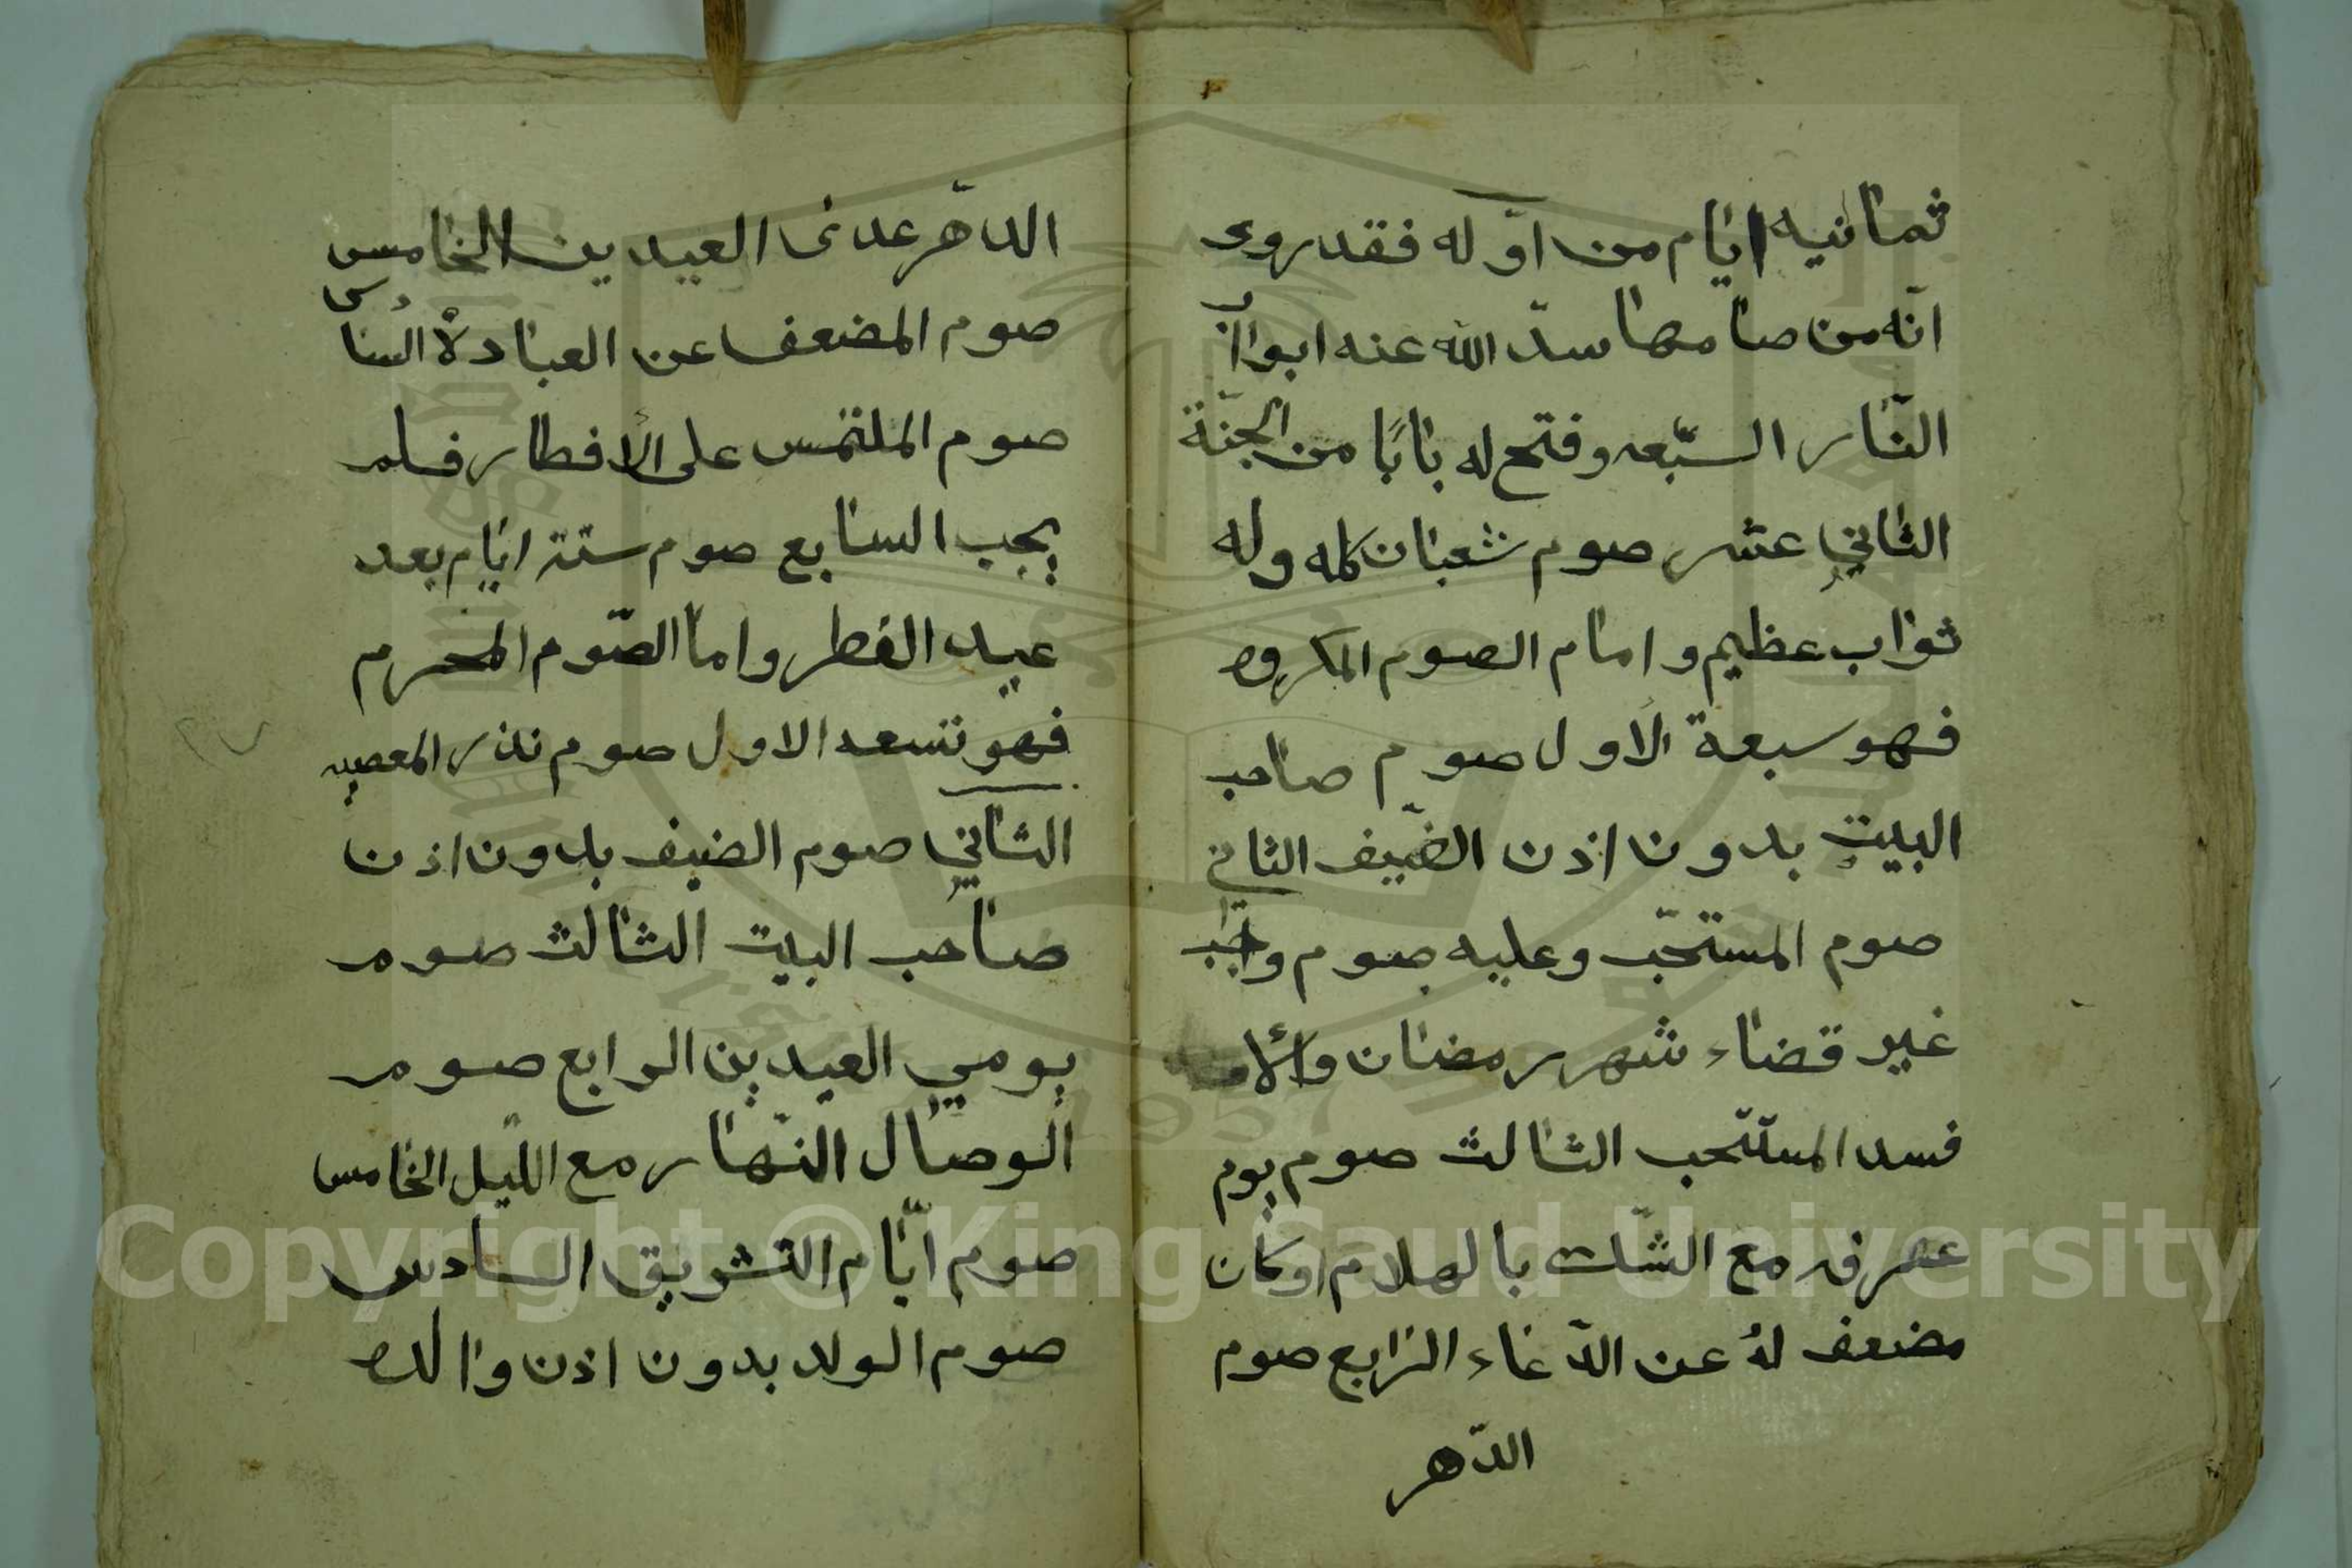 ثمانيه ايّام من اوّله فقد روى
انّه من صامها سدّ الله عنه ابواب
النّار السّبعه وفتح له بابًا من الجنّة
الثاني عشر صوم شعبان كله وله
ثواب عظيم وامام الصوم المكروه
فهو سبعة الاول صوم صاحب
البيت بدون اذن الضّيف الثاني
صوم المستحّب وعليه صوم واجب
غير قضاء شهر رمضان والا
فسد المستحب الثالث صوم يوم
عرفه مع الشّك بالهلام او كان
مضعف له عن الدّعاء الرّابع صوم
الدّهر
الدّهر عدى العيدين الخامس
صوم المضعف عن العبادة السادس
صوم الملتمس على الأفطار فلم
يجب السابع صوم ستة ايّام بعد
عيد الفطر واما الصّوم المحرم
فهو تسعه الاول صوم نذر المعصيه
الثاني صوم الضيف بدون اذن
صاحب البيت الثالث صوم
يومي العيدين الرابع صوم
الوصال النّهار مع اللّيل الخامس
صوم ايّام التشريق السادس
صوم الولد بدون اذن والده
Copyright © King Saud University
1957